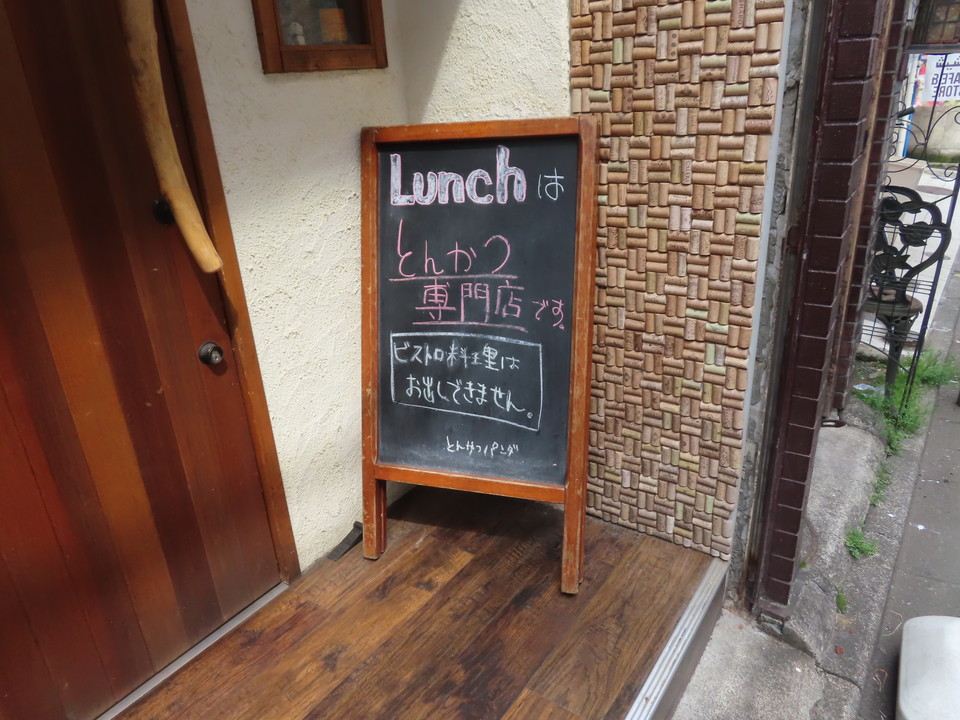 Lunch は
とんかつ
専門店です。
ビストロ料理は
お出しできません。
とんかつパンダ
CAFE &
STORE